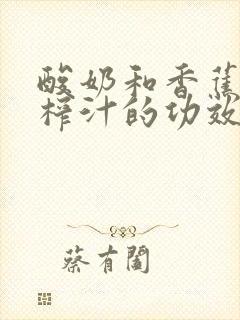 酸奶和香蕉
榨汁的功效
蔡有阖